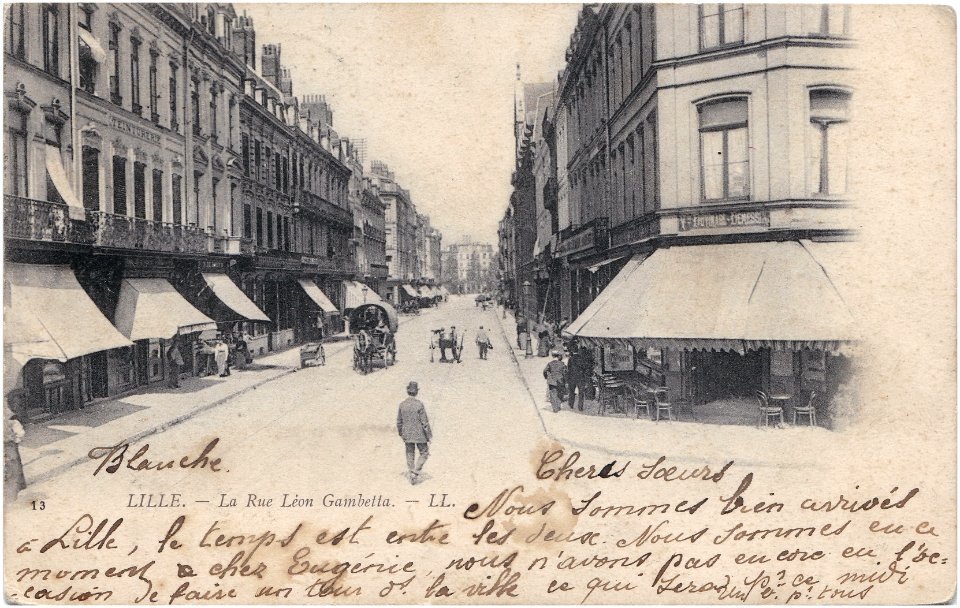 TEINTURERIE
Blanche.
Cheres Sœurs
13 LILLE. — La Rue Léon Gambetta. — LL.
Nous sommes bien arrivés
à Lille, le temps est entre les deux. Nous sommes en ce
moment chez Eugénie, nous n'avons pas encore eu l'oc-
casion de faire un tour ds. la ville ce qui sera pr. ce midi
Un b. pr. tous